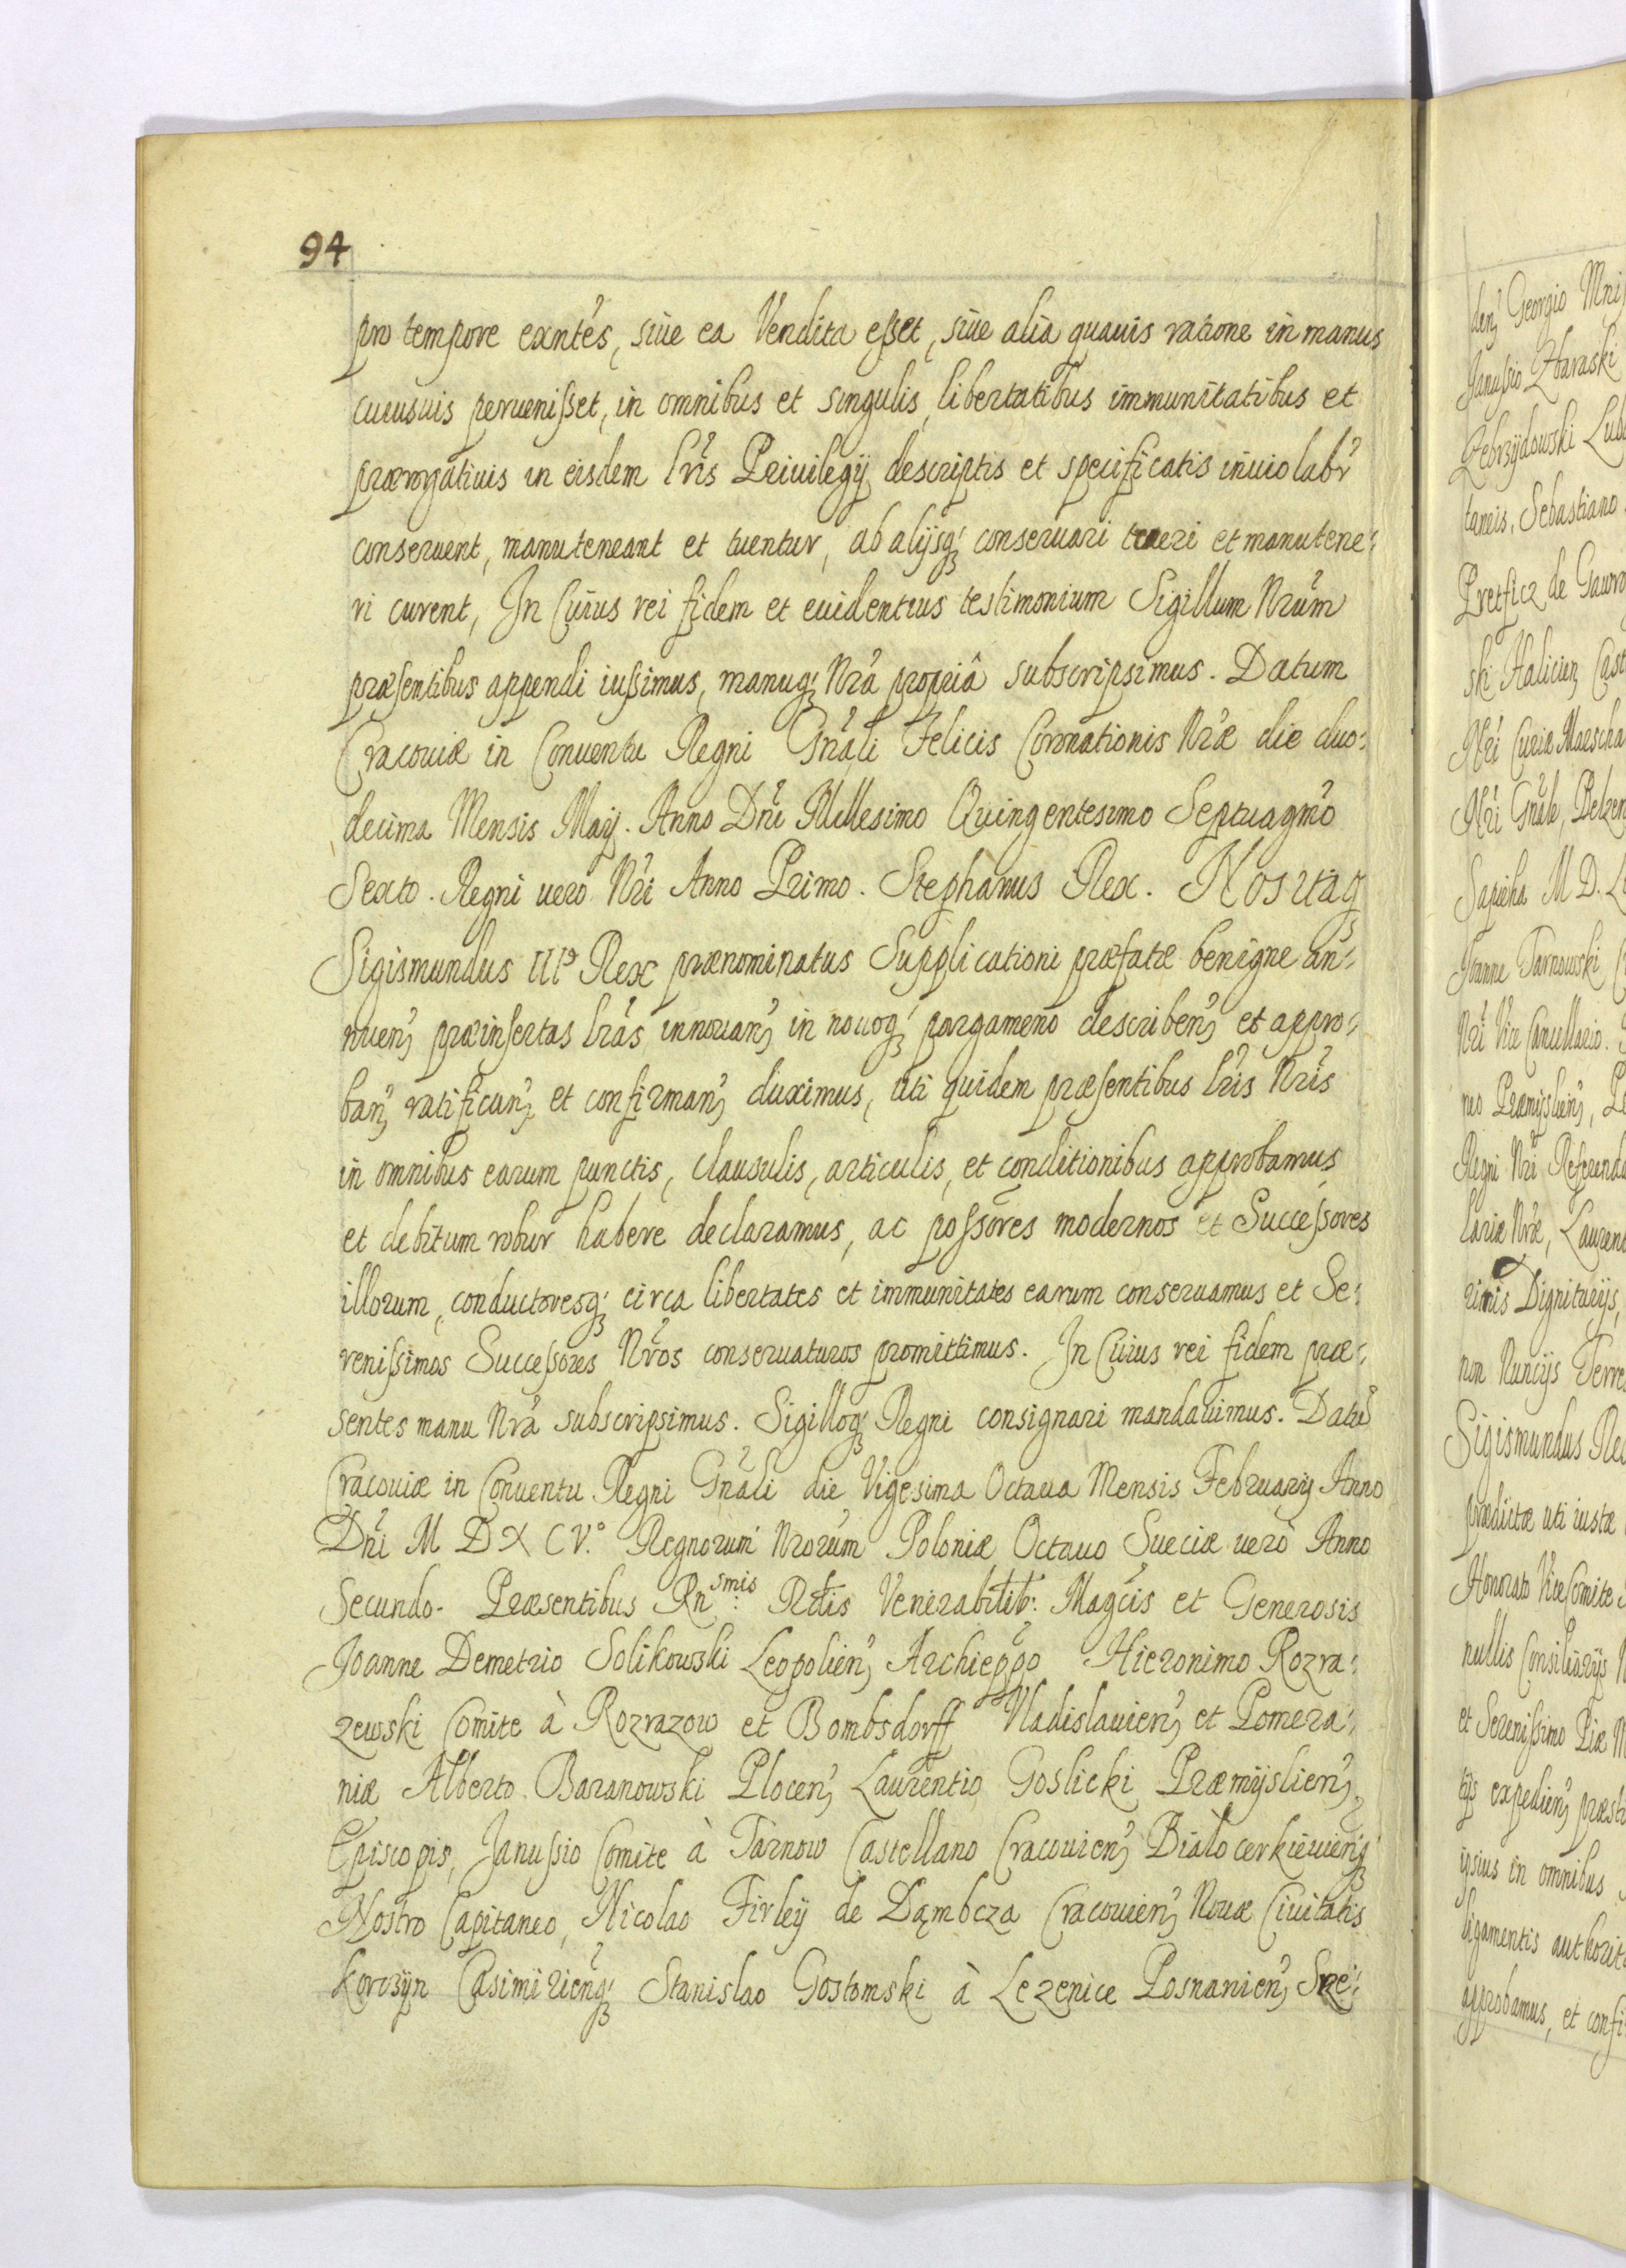 94
pro tempore exntes, siue ea Vendita esset, siue alia quauis ratione in manus
cuiusuis peruenisset, in omnibus et singulis, libertatibus immunitatibus et
prærogatiuis in eisdem lris Priuilegij descriptis et specificatis inuiolabr
conseruent, manuteneant et tuentur, ab alijsq; conseruari tueri et manutene:
ri curent, In Cuius rei fidem et euidentius testimonium Sigillum Nrum
præsentibus appendi iussimus, manuq; Nra propriâ subscripsimus. Datum
Cracouiæ in Conuentu Regni Gnali Felicis Coronationis Nræ die duo:
decima Mensis Maij. Anno Dni Millesimo Quingentesimo Septuagmo
Sexto. Regni uero Nri Anno Primo. Stephanus Rex. Nos itaq
Sigismundus IIIs Rex prænominatus Supplicationi præfatæ benigne an:
nuen, præinsertas lras innouan, in nouoq; pargameno describen, et appro:
ban, ratifican, et confirman, duximus, uti quidem præsentibus lris Nris
in omnibus earum punctis, clausulis, articulis, et conditionibus approbamus
et debitum robur habere declaramus, ac possores modernos et Successores
illorum, conductoresq; circa libertates et immunitates earum conseruamus et Se:
renissimos Successores Nros conseruaturos promittimus. In Cuius rei fidem præ:
sentes manu Nra subscripsimus. Sigilloq; Regni consignari mandauimus. Datu
Cracouiæ in Conuentu Regni Gnali die Vigesima Octaua Mensis Februarij Anno
Dni M D X C V.° Regnorum Nrorum Poloniæ Octauo Sueciæ uero Anno
Secundo. Præsentibus Rnsmis: Rdis Venerabilib: Magcis et Generosis
Joanne Demetrio Solikowski Leopolien, Archieppo Hieronimo Rozra:
zewski Comite à Rozrazow et Bombsdorff Vladislauien, et Pomera:
niæ Alberto Baranowski Plocen, Laurentio Goslicki Præmijslien,
Episcopis, Janussio Comite à Tarnow Castellano Cracouien, Białocerkieuienq;
Nostro Capitaneo, Nicolao Firleij de Dąmbcza Cracouien, Nouæ Ciuitatis
Korczijn Casimirienq; Stanislao Gostomski à Lezenice Posnanien, Sre:
den, Georgio Mni
Janussio Zbaraski
Zebrzijdowski Lub
taneis, Sebastiano
Pretficz de Gawro
ski Halicien, Cast
Nri Curiæ Marscha
Nri Gnale, Belzen
Sapieha M D. L
Joanne Tarnowski C
Nri Vice Cancellario.
neo Præmijslien, P
Regni Nri Referenda
lariæ Nræ, Laurent
rimis Dignitarijs,
non Nuncijs Terres
Sigismundus Re
prædictæ uti iustæ
Honorato Vice Comite
nullis Consiliarijs N
et Serenissimo Piæ M
tijs expedien, præsti
ipsius in omnibus
ligamentis authorit
approbamus, et confi